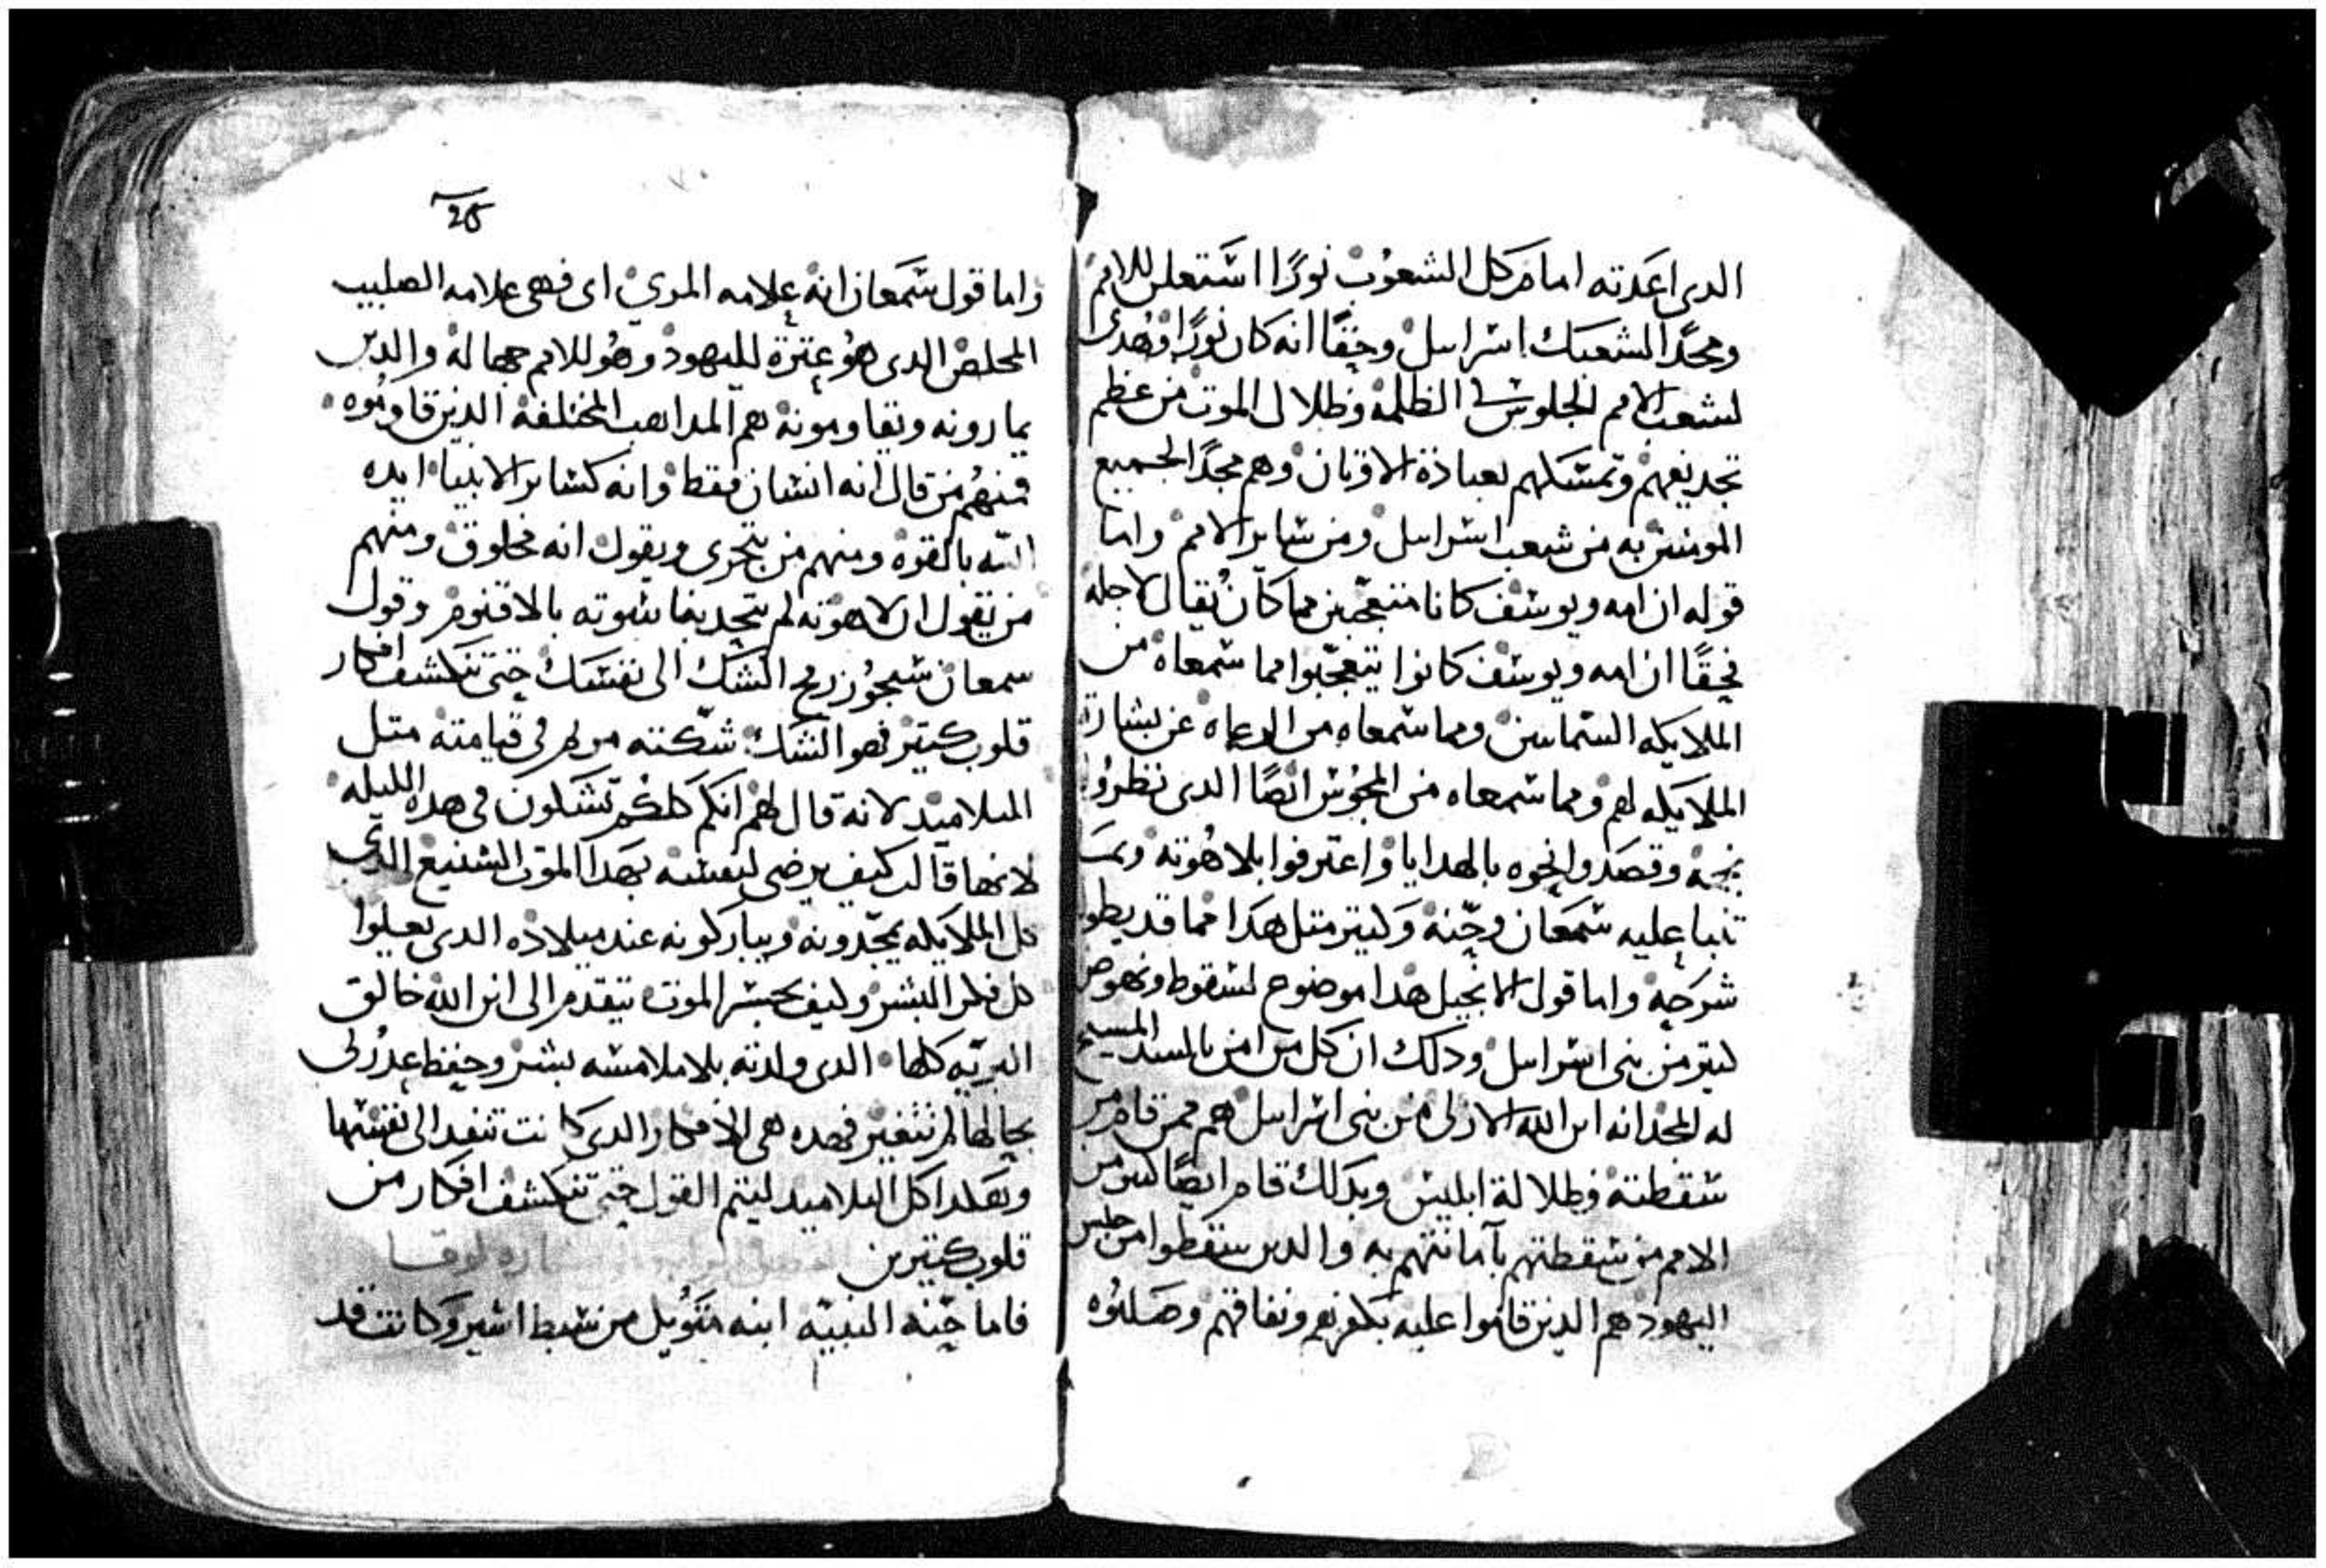 الدى اعدته امام كل الشعوب نورًا استعلن للامم
ومجدًا لشعبك اسراييل وحقًا انه كان نورًا وهدى
لشعب الامم الجلوس في الظلمة وظلال الموت من عظم
تجديفهم وتمسكهم بعبادة الاوتان وهم مجدًا لجميع
المومنين به من شعب اسراييل ومن ساير الامم واما
قوله ان امه ويوسف كانا متعجبين مما كان يقال لاجله
فحقًا ان امه ويوسف كانوا يتعجبوا مما سمعاه من
الملايكه السماييين ومما سمعاه من الرعاه عن بشارة
الملايكه لهم ومما سمعاه من المجوس ايضًا الدى نظروا
نجمه وقصدوا نحوه بالهدايا واعترفوا بلاهوته وبمـ
تنبا عليه سمعان وحنه وكتير متل هدا مما قد يطول
شرحه واما قول الانجيل هدا موضوع لسقوط ونهوض
كتير من بنى اسراييل ودلك ان كل من امن بالسيد المسيح
له المجد انه ابن الله الازلى من بنى اسراييل هم ممن قام من
سقطته وظلالة ابليس وبدلك قام ايضًا كتير من
الامم من سقطتهم بآمانتهم به والدين سقطوا من جنس
اليهود هم الدين قاموا عليه بكفرهم ونفاقهم وصلبوه
25
واما قول سمعان انه علامه المرى اى فهى علامه الصليب
المخلص الدى هو عترة لليهود وهو للامم جهاله والدين
يمارونه ويقاومونه هم المداهب المختلفه الدين قاوموه
فمنهم من قال انه انسان فقط وانه كساير الانبيا ايده
الله بالقوه ومنهم من يتجرى ويقول انه مخلوق ومنهم
من يقول ان لاهوته لم يتحد بناسوته بالاقنوم وقول
سمعان سيجوز رمح الشك الى نفسك حتى تنكشف افكار
قلوب كتير فهو الشك شكته مريم فى قيامته متل
التلاميد لانه قال لهم انكم كلكم تشكون فى هده الليله
لانها قالت كيف يرضى لنفسه بهدا الموت الشنيع الدى
كل الملايكه يمجدونه ويباركونه عند ميلاده الدى يعلوا
كل فكر البشر وكيف يجسر الموت يتقدم الى ابن الله خالق
البريه كلها الدى ولدته بلا ملامسه بشر وحفظ عدرتى
بحالها لم تتغير فهده هى الافكار الدى كانت تنفد الى نفسها
وهكدا كل التلاميد ليتم القول حتى تنكشف افكار من
قلوب كتيرين
فاما حنه النبيه ابنه فنويل من سبط اشير وكانت قد